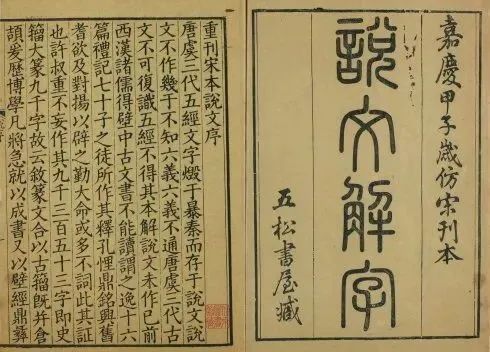 嘉慶甲子歲仿宋刊本
說文解字
五松書屋藏
重刊宋本說文序
唐虞三代五經文字燬于暴秦而存于說文說
文不作幾于不知六義六義不通唐虞三代古
文不可復識五經不得其本解說文未作已前
西漢諸儒得壁中古文書不能讀謂之逸十六
篇禮記七十子之徒所作其釋孔悝鼎銘興舊
耆欲及對揚以辟之勤大命或多不詞此其証
也許叔重不妄作其九千三百五十三字即史
籀大篆九千字故云敘篆文合以古籀既并倉
頡爰歷博學凡將急就以成書又以壁經鼎彝